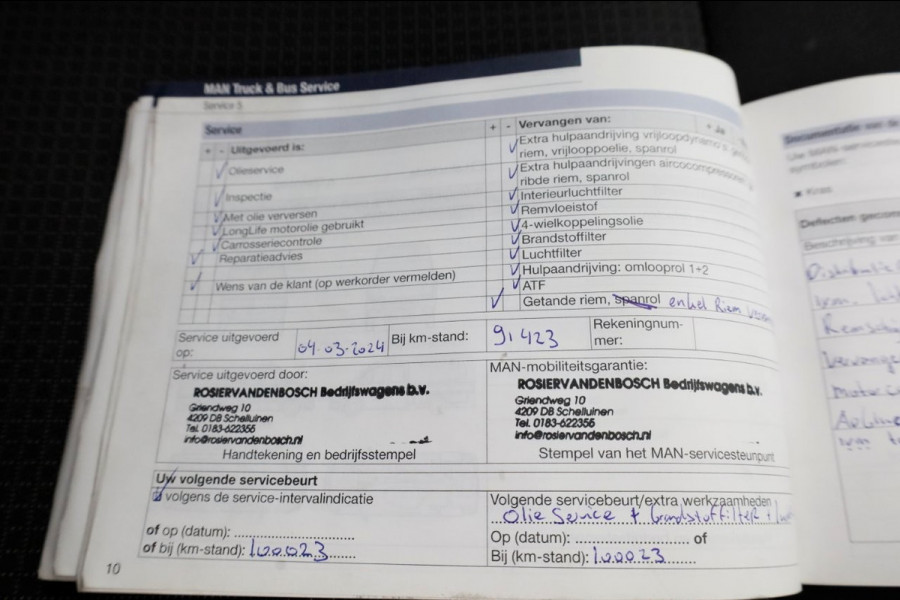 MAN Truck & Bus Service
Service 5
Service
+ - Uitgevoerd is:
Olieservice
Inspectie
Met olie verversen
LongLife motorolie gebruikt
Carrosseriecontrole
Reparatieadvies
Wens van de klant (op werkorder vermelden)
+ - Vervangen van: + Ja
Extra hulpaandrijving vrijloopdynamo's
riem, vrijlooppoelie, spanrol
Extra hulpaandrijvingen aircocompressor
ribde riem, spanrol
Interieurluchtfilter
Remvloeistof
4-wielkoppelingsolie
Brandstoffilter
Luchtfilter
Hulpaandrijving: omlooprol 1+2
ATF
Getande riem, spanrol enkel Riem
Service uitgevoerd
op:
04-03-2024
Bij km-stand:
91423
Rekeningnum-
mer:
Service uitgevoerd door:
ROSIERVANDENBOSCH Bedrijfswagens b.v.
Griendweg 10
4209 DB Schelluinen
Tel. 0183-622356
info@rosiervandenbosch.nl
Handtekening en bedrijfsstempel
MAN-mobiliteitsgarantie:
ROSIERVANDENBOSCH Bedrijfswagens b.v.
Griendweg 10
4209 DB Schelluinen
Tel. 0183-622356
info@rosiervandenbosch.nl
Stempel van het MAN-servicesteunpunt
Uw volgende servicebeurt
volgens de service-intervalindicatie
of op (datum):
of bij (km-stand): 100023
Volgende servicebeurt/extra werkzaamheden
Olie Service + brandstoffilter +
Op (datum): of
Bij (km-stand): 100023
10
Documentatie van de
Uw MAN-service
symbolen:
Kras
Beschrijving van